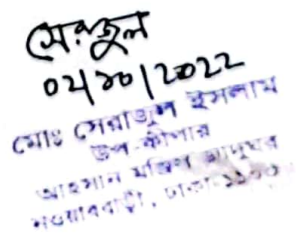 সেরাজুল
০২/১০/২০২২
মোঃ সেরাজুল ইসলাম
উপ-কীপার
আহসান মঞ্জিল জাদুঘর
নওয়াববাড়ী, ঢাকা-১১০০